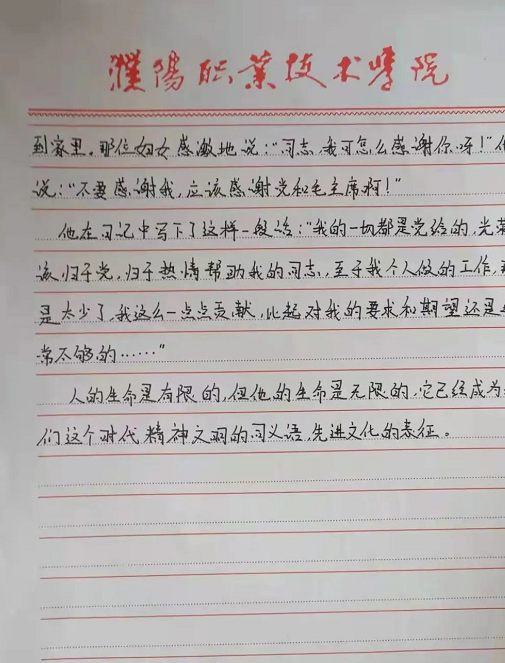 濮陽职业技术学院
到家里,那位妇女感激地说:“同志,我可怎么感谢你呀!”
说:“不要感谢我,应该感谢党和毛主席啊!”
他在日记中写下了这样一段话:“我的一切都是党给的,光荣
该归于党,归于热情帮助我的同志,至于我个人做的工作,
是太少了,我这么一点点贡献,比起对我的要求和期望还是
常不够的……”
人的生命是有限的,但他的生命是无限的,它已经成为
们这个时代精神文明的同义语,先进文化的表征。